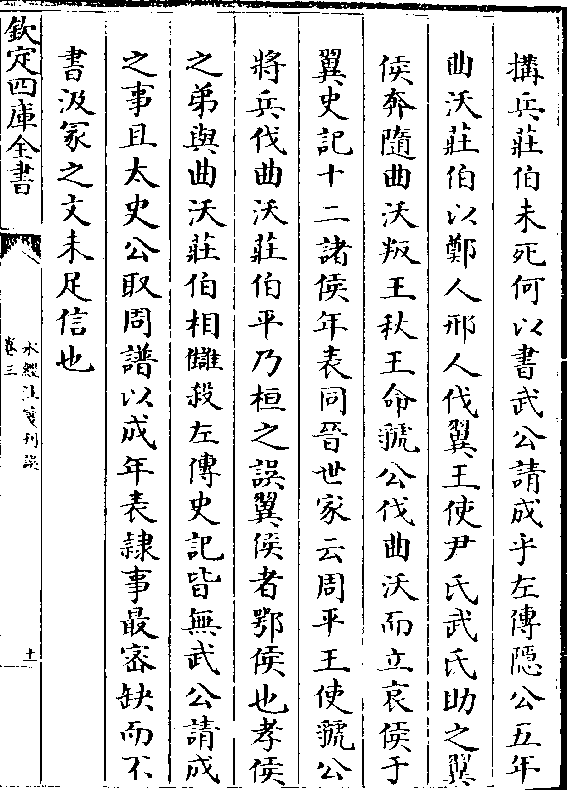 搆兵莊伯未死何以書武公請成乎左傳隠公五年
曲沃莊伯以鄭人邢人伐翼王使尹氏武氏助之翼
侯奔隨曲沃叛王秋王命虢公伐曲沃而立哀侯于
翼史記十二諸侯年表同晉世家云周平王使虢公
將兵伐曲沃莊伯平乃桓之誤翼侯者鄂侯也孝侯
之弟與曲沃莊伯相讎殺左傳史記皆無武公請成
之事且太史公取周譜以成年表隸事最審缺而不
書汲冢之文未足信也
欽定四庫全書
水經注箋刊誤
卷三
十